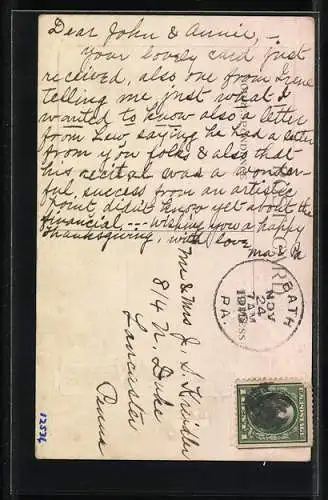 Dear John & Annie, -
Your lovely card just
received, also one from Irene
telling me just what I
wanted to know also a letter
from Lew saying he had a letter
from you folks & also that
his recital was a wonder-
ful success from an artistic
point, didn't know yet about the
financial --- wishing you a happy
thanksgiving, with love
Ma & Pa
Mr & Mrs J. S.
814 N. Duke
Lancaster
Penna
BATH
NOV
24
7 AM
PA.
U.S. POSTAGE
1 CENT 1
12536